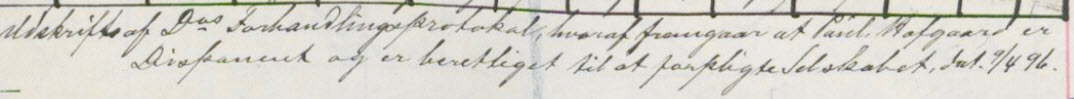 Udskrift af Dos Forhandlingsprotokol, hvoraf fremgaar at Paul Hofgaard er
Disponent og er berettiget til at forpligte Selskabet, dat. 9/4 96.